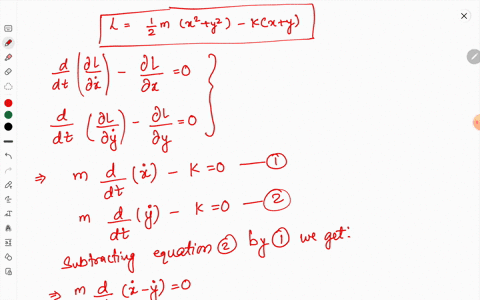 L = ½ m (x²+y²) − K(x+y)
d/dt (∂L/∂ẋ) − ∂L/∂x = 0
d/dt (∂L/∂ẏ) − ∂L/∂y = 0
⇒ m d/dt (ẋ) − K = 0 — ①
m d/dt (ẏ) − K = 0 — ②
Subtracting equation ② by ① we get:
⇒ m d/dt (ẋ−ẏ) = 0